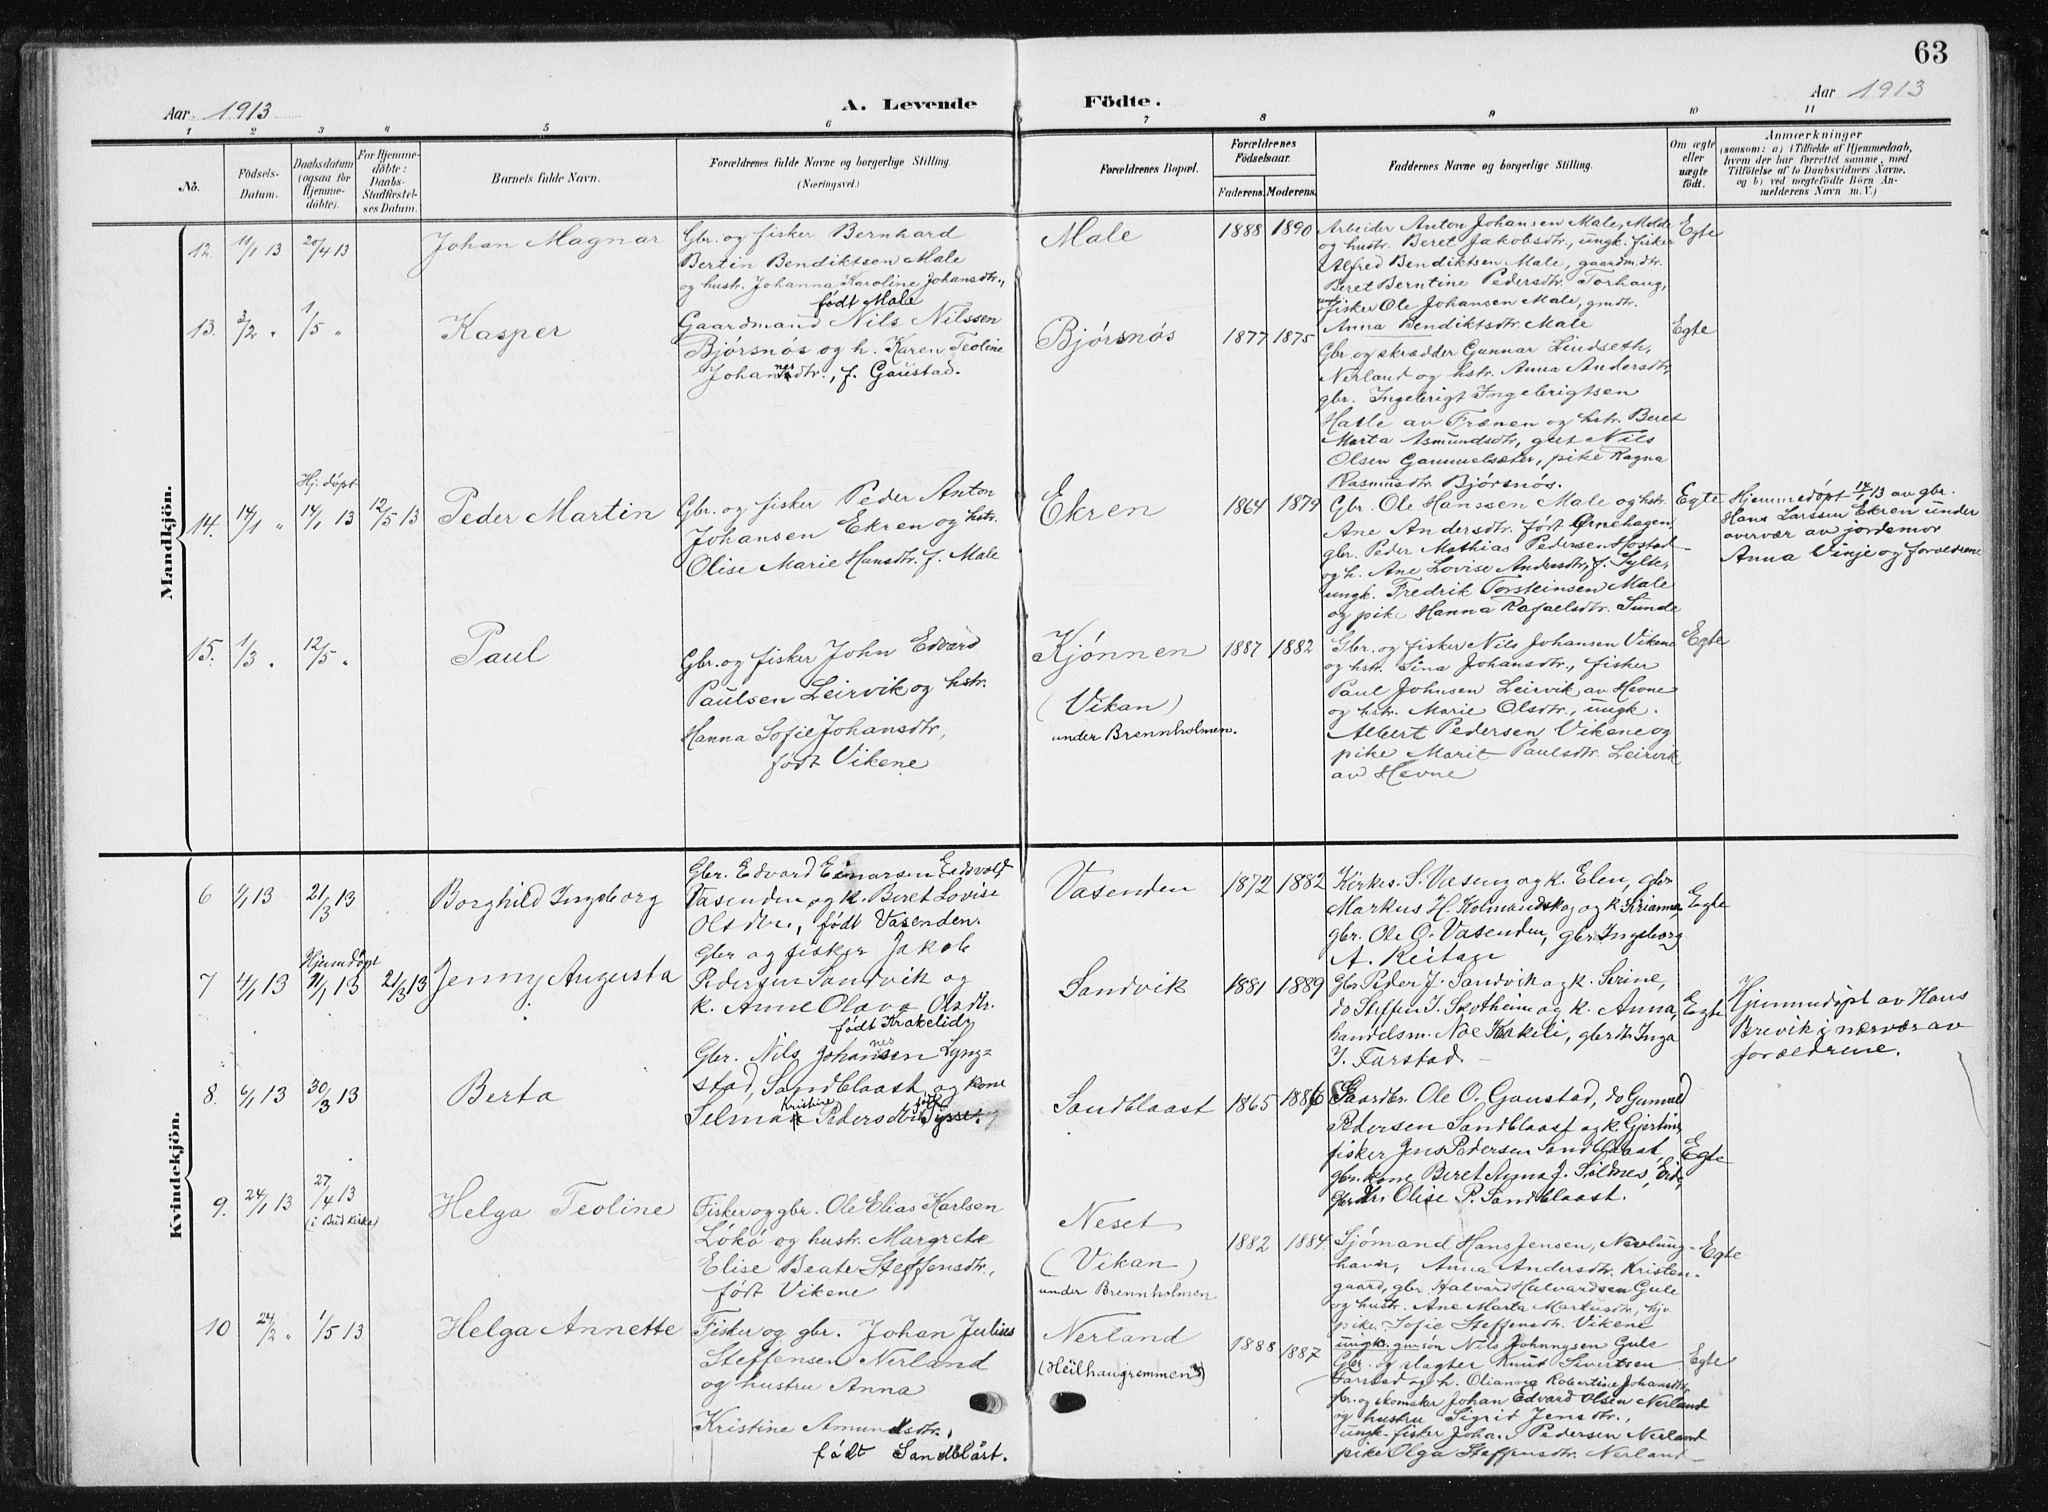 63
Aar 1913
A. Levende
Födte.
Aar 1913
1 2 3 4 5 6 7 8 9 10 11
No.
Fødsels-
Datum.
Daabsdatum
(ogsaa for
Hjemme-
döbte).
For Hjemme-
döbte:
Daabs-
Stadfæstel-
ses Datum.
Barnets fulde Navn.
Forældrenes fulde Navne og borgerlige Stilling.
(Næringsvei.)
Forældrenes Bopæl.
Forældrenes
Födselsaar.
Faderens.
Moderens.
Faddernes Navne og borgerlige Stilling.
Om ægte
eller
uægte
født.
Anmærkninger
(saasom: a) i Tilfælde af Hjemmedaab,
hvem der har forrettet samme, med
Tilföielse af to Daabsvidners Navne.
og b) ved uægtefödte Börn An-
melderens Navn m. V.)
Mandkjön.
12.
11/1 13
20/4 13
Johan Magnar
Gbr. og fisker Bernhard
Bertin Bendiktsen Male
og hustr. Johanna Karoline Johansdtr.,
født Male
Male
1888
1890
Arbeider Anton Johansen Male, Molde
og hustr. Beret Jakobsdtr., ungk. fisker
Alfred Bendiktsen Male, gaardm.dtr.
Beret Berntine Pedersdtr. Torhaug,
ungk. fisker Ole Johansen Male, gmdtr.
Anna Bendiktsdtr. Male
Egte
13.
3/2 "
1/5 "
Kasper
Gaardmand Nils Nilssen
Bjørsnøs og h. Karen Teoline
Johannesdtr., f. Gaustad.
Bjørsnøs
1877
1875
Gbr. og skrædder Gunnar Lindseth,
Nerland og hstr. Anna Andersdtr,
gbr. Ingebrigt Ingebrigtsen
Hatle av Frænen og hstr. Beret
Marta Asmundsdtr, gut Nils
Olsen Gammelsæter, pike Ragna
Rasmusdtr Bjørsnøs.
Egte
14.
14/1 "
Hj. døpt
14/1 13
12/5 13
Peder Martin
Gbr. og fisker Peder Anton
Johansen Ekren og hstr.
Olise Marie Hansdtr. f. Male
Ekren
1864
1879
Gbr. Ole Hanssen Male og hstr.
Ane Andersdtr. født Ørnehagen,
gbr. Peder Mathias Pedersen Hostad
og h. Ane Lovise Andersdtr, f. Sylte,
ungk. Fredrik Torsteinsen Male
og pike Hanna Rafaelsdtr. Sunde
Egte
Hjemmedøpt 14/1 13 av gbr.
Hans Larssen Ekren under
overvær av jordemor
Anna Vinje og foreldrene
15.
1/3 "
12/5 "
Paul
Gbr. og fisker John Edvard
Paulsen Leirvik og hstr.
Hanna Sofie Johansdtr,
født Vikene
Kjønnen
(Vikan)
under Brennholmen.
1887
1882
Gbr. og fisker Nils Johansen Vikene
og hstr. Sina Johansdtr., fisker
Paul Johnsen Leirvik av Hevne
og hstr. Marie Olsdtr., ungk.
Albert Pedersen Vikene og
pike Marit Paulsdtr. Leirvik
av Hevne
Egte
Kvindekjön.
6
1/1 13
21/3 13
Borghild Ingeborg
Gbr. Edvard Einarsen Eidsvolt
Vasenden og k. Beret Lovise
Olsdtr, født Vasenden.
Vasenden
1872
1882
Kirkes. S. Vaseng og k. Elen, gbr
Markus H. Kolmandskog og k. Sirianna,
gbr. Ole O. Vasenden, gbr Ingeborg
A. Reitan
Egte
7
4/1 13
Hjemdøpt
11/1 13
21/3 13
Jenny Augusta
Gbr og fisker Jakob
Pedersen Sandvik og
k. Anne Olava Olsdtr.
født Krakelid
Sandvik
1881
1889
Gbr Peder J. Sandvik og k. Serine,
do Steffen I. Skotheim og k. Anna,
handelsm. Noe Krakeli, gbrdtr. Inga
J. Farstad.
Egte
Hjemmedøpt av Hans
Brevik i nærvær av
foreldrene.
8.
6/1 13
30/3 13
Berta
Gbr. Nils Johannesen Lyng-
stad, Sandblaast og kone
Selma Kristine Pedersdtr født Lysse.
Sandblaast
1865
1886
Gaardbr. Ole O. Gaustad, do Gunvald
Pedersen Sandblaast og k. Gjertine,
fisker Jens Pedersen Sandblaast,
gbr. kone Beret Anna J. Sølnes, Eide,
gbrdtr. Olise P. Sandblaast.
Egte
9.
24/1 13
27/4 13
(i Bud kirke)
Helga Teoline
Fisker og gbr. Ole Elias Karlsen
Løkø og hustr. Margrete
Elise Beate Steffensdtr.,
født Vikene
Neset
(Vikan)
under Brennholmen
1882
1884
Sjømand Hans Jensen, Nevlung-
havn, Anna Andersdtr. Kristen-
gaard, gbr. Halvard Halvardsen Gule
og hustr. Ane Marta Markusdtr., hjv.
pike Sofie Steffensdtr. Vikene
ungk. gmsøn Nils Johnnysen Gule
Egte
10
24/2 "
1/5 13
Helga Annette
Fisker og gbr. Johan Julius
Steffensen Nerland
og hustru Anna
Kristine Amundsdtr.,
født Sandblåst.
Nerland
(Heilhaugremmen)
1888
1887
Gbr. og slagter Knut Sivertsen
Farstad og h. Olianna Robertine Johansdtr.
gbr. og skomaker Johan Edvard Olsen Nerland
og hustru Sigrid Jensdtr.,
ungk. fisker Johan Pedersen Nerland
pike Olga Steffensdtr. Nerland
Egte